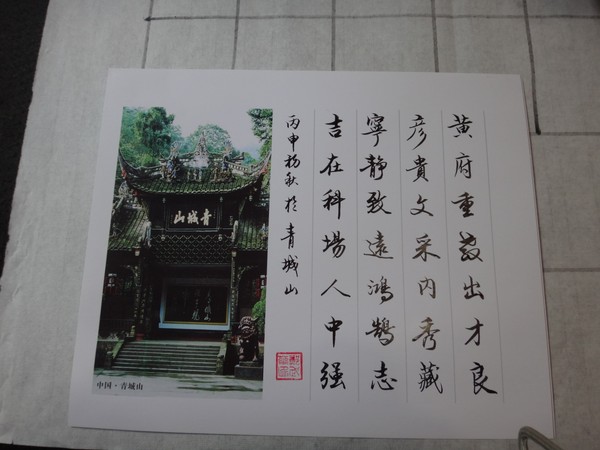 黄府重教出才良
彦貴文采内秀藏
寧静致遠鴻鵠志
吉在科場人中强
丙申初秋於青城山
青城山
中国·青城山